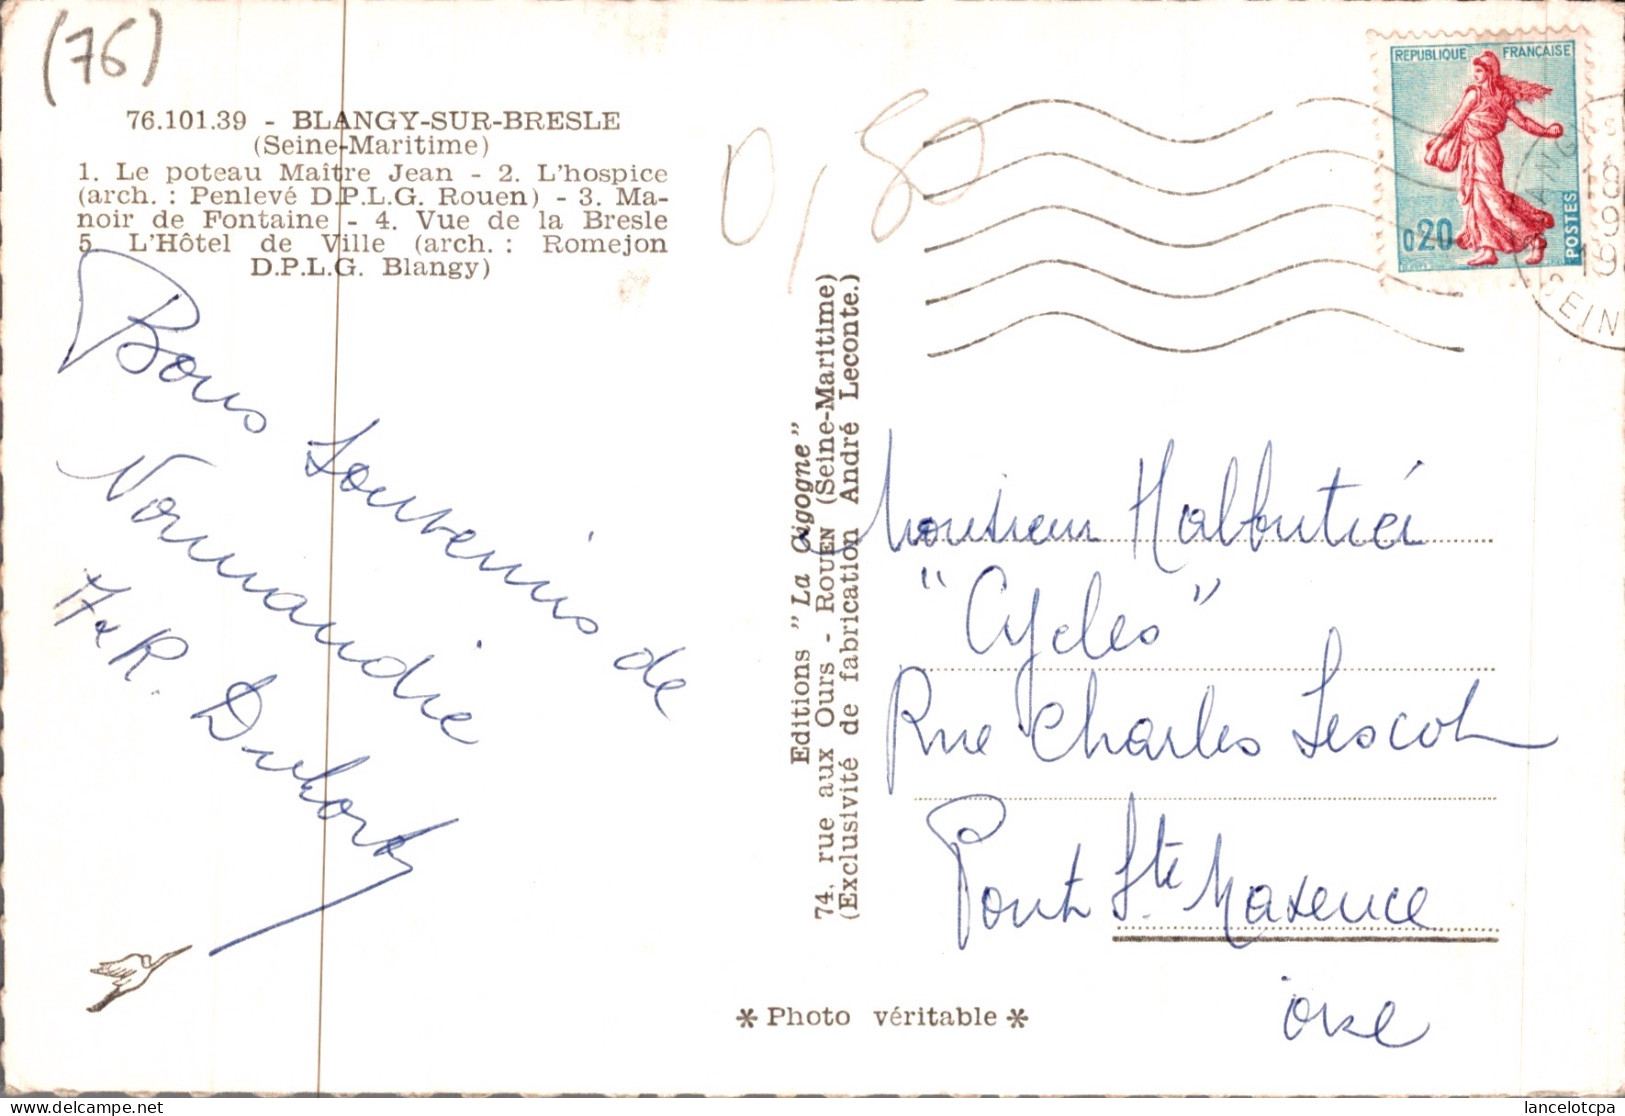 (76)
76.101.39 - BLANGY-SUR-BRESLE
(Seine-Maritime)
1. Le poteau Maître Jean - 2. L'hospice
(arch. : Penlevé D.P.L.G. Rouen) - 3. Ma-
noir de Fontaine - 4. Vue de la Bresle
5. L'Hôtel de Ville (arch. : Romejon
D.P.L.G. Blangy)
0,80
REPUBLIQUE FRANÇAISE
0,20
POSTES
Bons Souvenirs de
Normandie
& R.
Editions "La Cigogne"
74, rue aux Ours - ROUEN (Seine-Maritime)
(Exclusivité de fabrication André Leconte.)
Monsieur
"Cycles"
Rue Charles Lescot
Pont Ste Maxence
oise
* Photo véritable *
www.delcampe.net
lancelotcpa